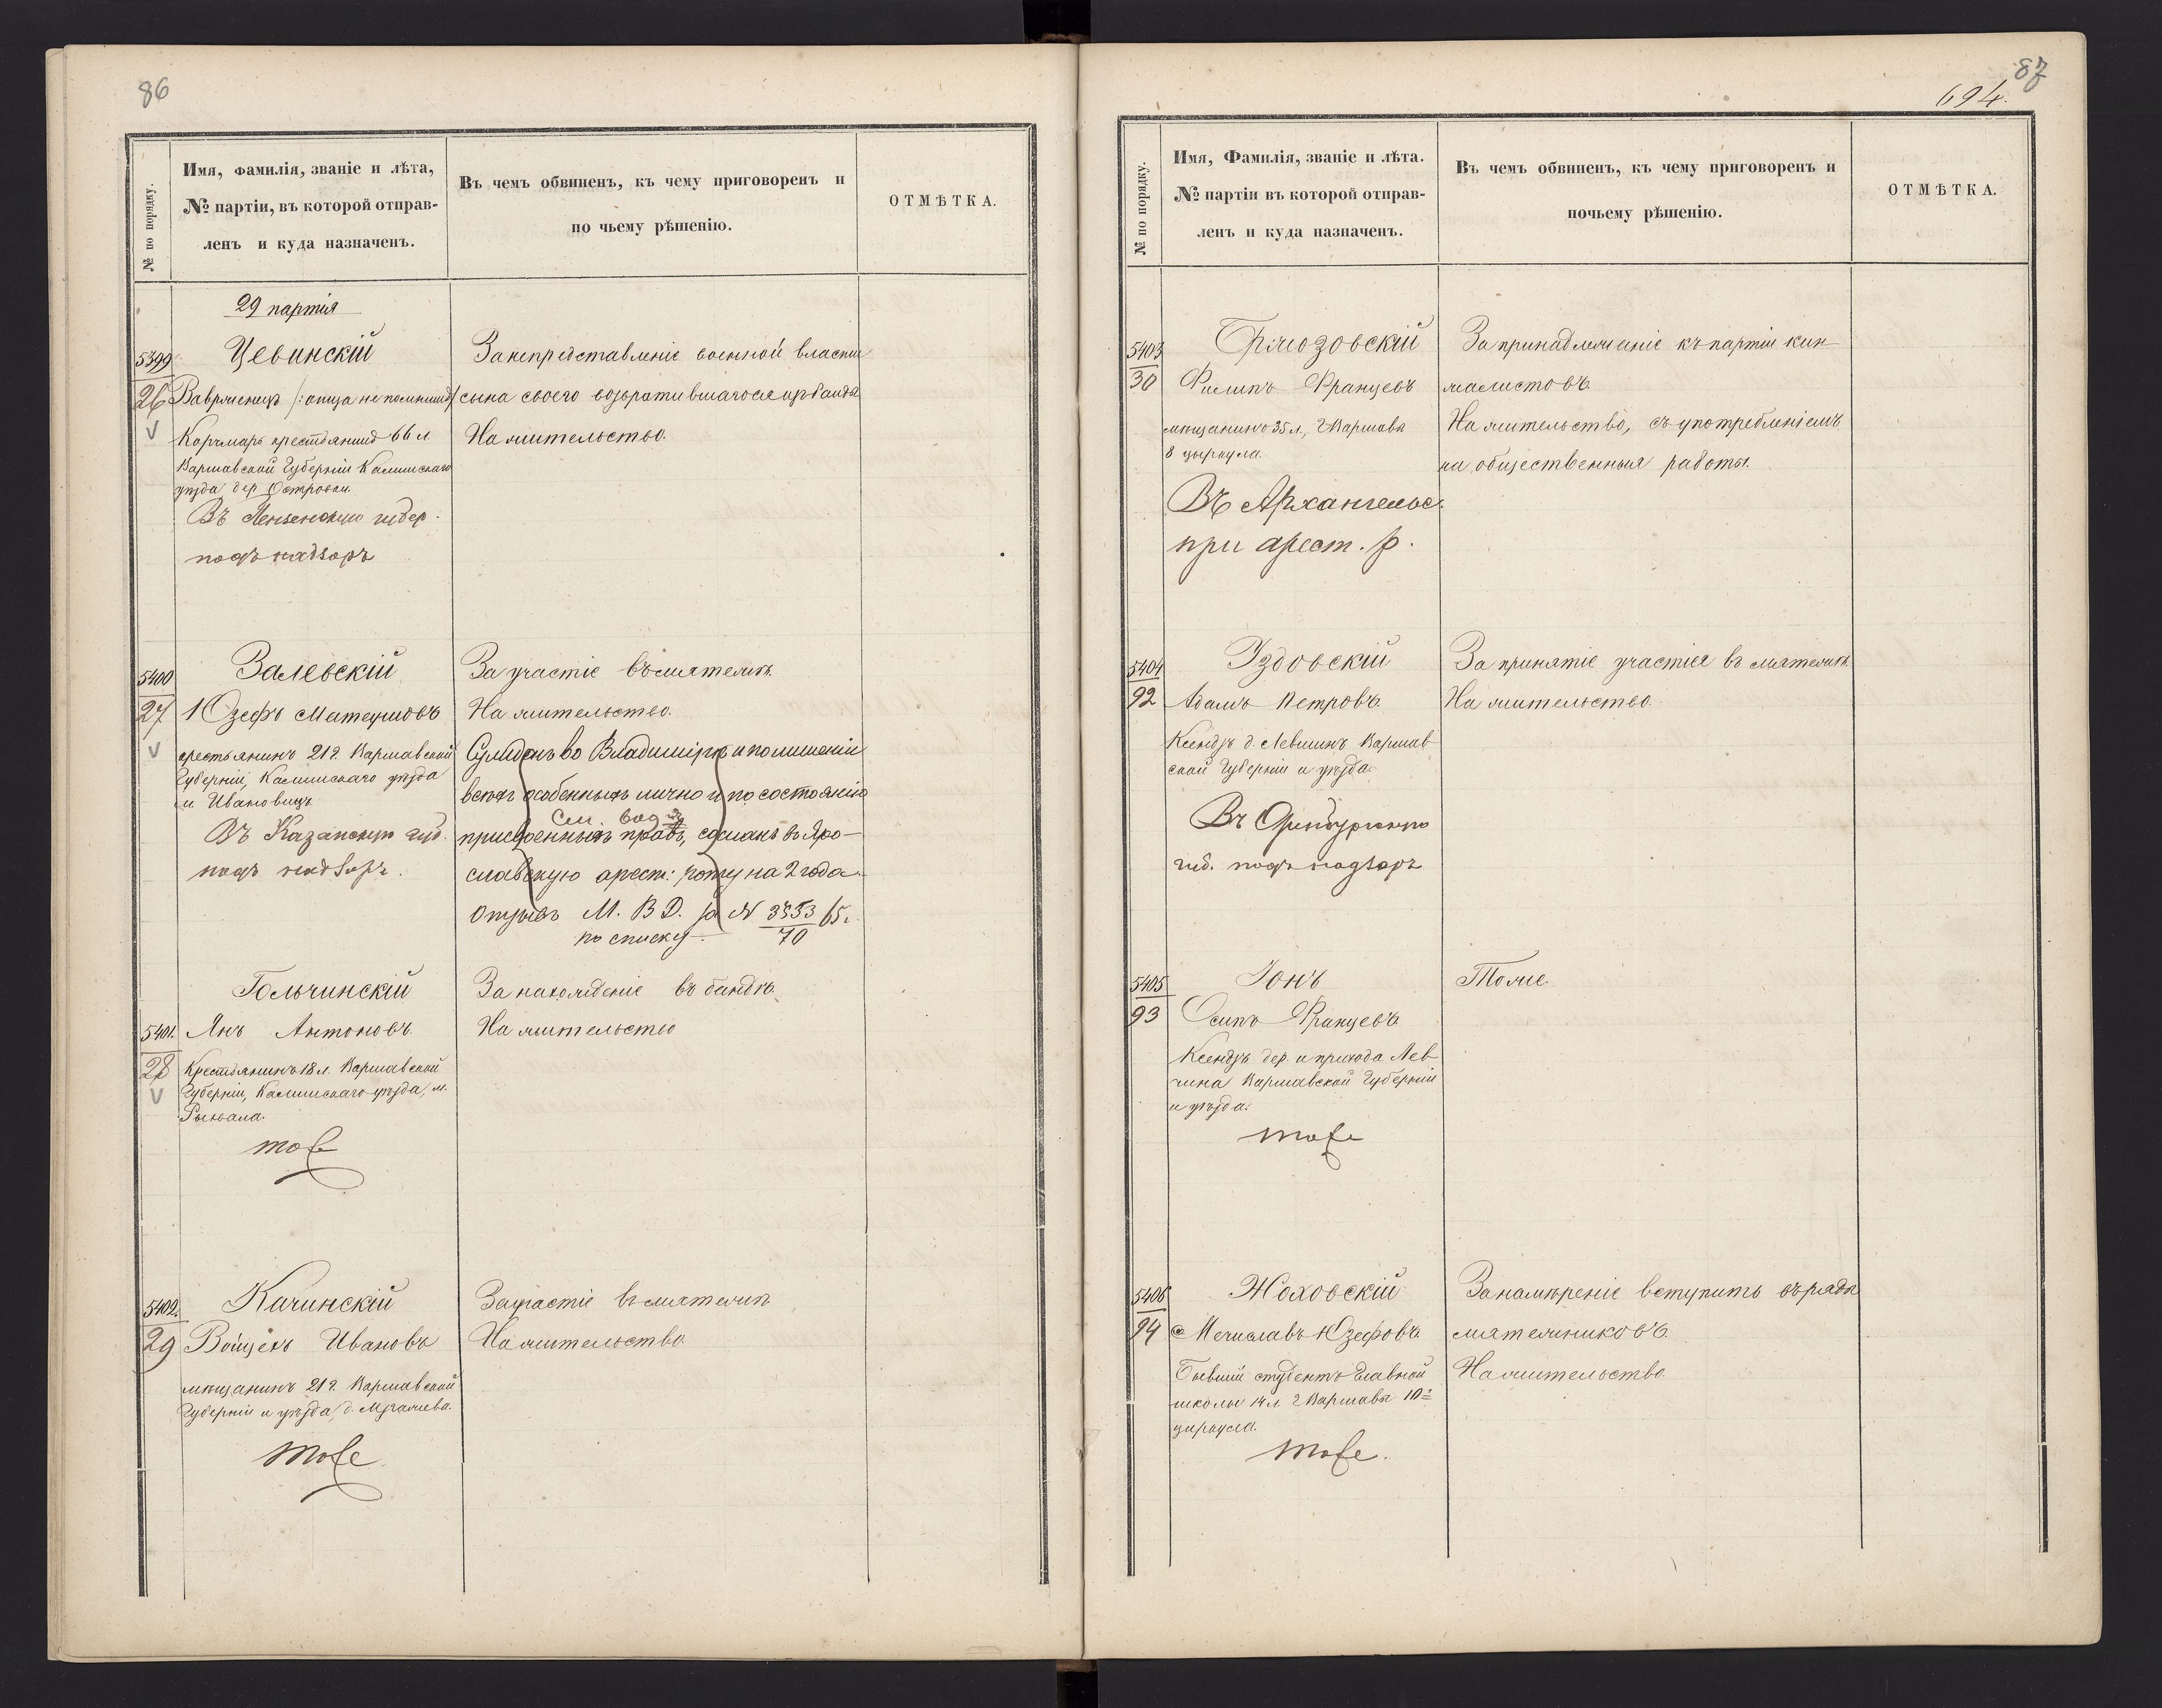 86
№ по порядку.
Имя, фамилія, званіе и лѣта,
№ партіи, въ которой отправ-
ленъ и куда назначенъ.
Въ чемъ обвиненъ, къ чему приговоренъ и
по чьему рѣшенію.
ОТМѢТКА.
29 партія
5399
26
Цевинскій
Вавржинецъ /: отца не помнитъ /
Корчмарь крестьянинъ 66 л.
Варшавской Губерніи Калишскаго
уѣзда дер Островки.
Въ Пензенскую губер.
подъ надзоръ
За непредставленіе военной власти
сына своего возвратившагося изъ банды
На жительство.
5400
27
Залевскій
Юзефъ Матеушовъ
крестьянинъ 21 г. Варшавской
Губерніи, Калишскаго уѣзда
м Ивановицъ
Въ Казанскую губ.
подъ надзоръ.
За участіе въ мятежѣ.
На жительство.
Сужденъ во Владимірѣ и по лишеніи
всѣхъ особенныхъ лично и по состоянію
См.
присвоенныхъ правъ, сосланъ въ Яро-
славскую арест: роту на 2 года.
Отзывъ М. В Д. за N 3353/70 65 г.
по списку.
5401.
28
Гольчинскій
Янъ Антоновъ
Крестьянинъ 18 л. Варшавской
Губерніи, Калишскаго уѣзда, м.
Рыхвала.
тоже
За нахожденіе въ бандѣ.
На жительство
5402.
29
Качинскій
Войцехъ Ивановъ
мѣщанинъ 21 г. Варшавской
Губерніи и уѣзда, д.
тоже.
За участіе въ мятежѣ
На жительство.
87
694.
№ по порядку.
Имя, Фамилія, званіе и лѣта.
№ партіи въ которой отправ-
ленъ и куда назначенъ.
Въ чемъ обвиненъ, къ чему приговоренъ и
почьему рѣшенію.
ОТМѢТКА.
5403
30
Бржозовскій
Филипъ Францевъ
мѣщанинъ 35 л., г Варшавы
8 циркула.
Въ Архангельс.
при арест. р.
За принадлежаніе къ партіи кин-
жалистовъ.
На жительство, съ употребленіемъ
на общественныя работы.
5404
92
Издовскій
Адамъ Петровъ.
Ксендзъ д. Левчинъ Варшав-
ской Губерніи и уѣзда.
Въ Оренбургскую
губ. подъ надзоръ
За принятіе участія въ мятежѣ
На жительство.
5405
93
Іонъ
Осипъ Францевъ.
Ксендзъ дер. и прихода Лев-
чина Варшавской Губерніи
и уѣзда.
тоже
Тоже.
5406
94
Жоховскій
Мечиславъ Юзефовъ.
Бывшій студентъ Главной
школы 14 л. г Варшавы 10го
циркула.
тоже.
За намѣреніе вступить въ ряды
мятежниковъ.
На жительство